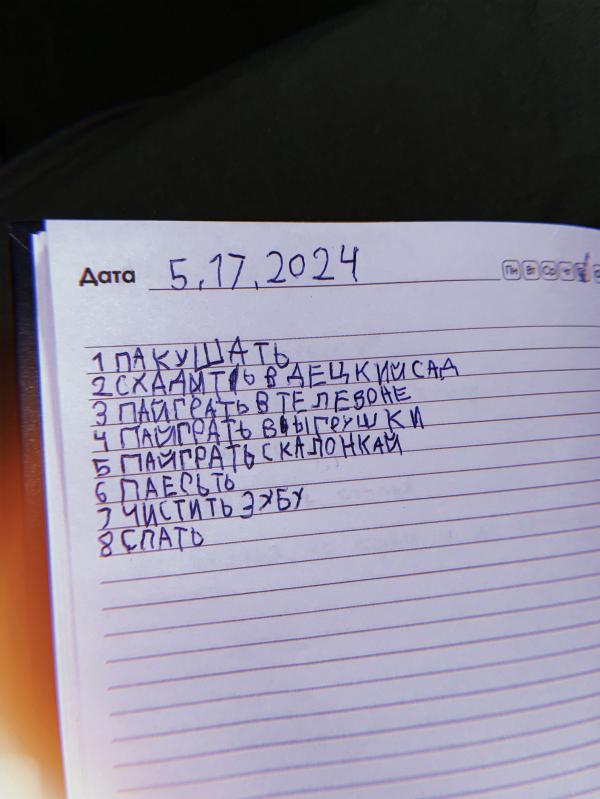 Дата 5.17.2024 Пн Вт Ср Чт
1 ПАКУШАТЬ
2 СХАДИТЬ В ДЕЦКИЙ САД
3 ПАЙГРАТЬ В ТЕЛЕВОНЕ
4 ПАЙГРАТЬ В ЫГРУШКИ
5 ПАЙГРАТЬ С КАЛОНКАЙ
6 ПАЕСЬТЬ
7 ЧИСТИТЬ ЗУБУ
8 СПАТЬ